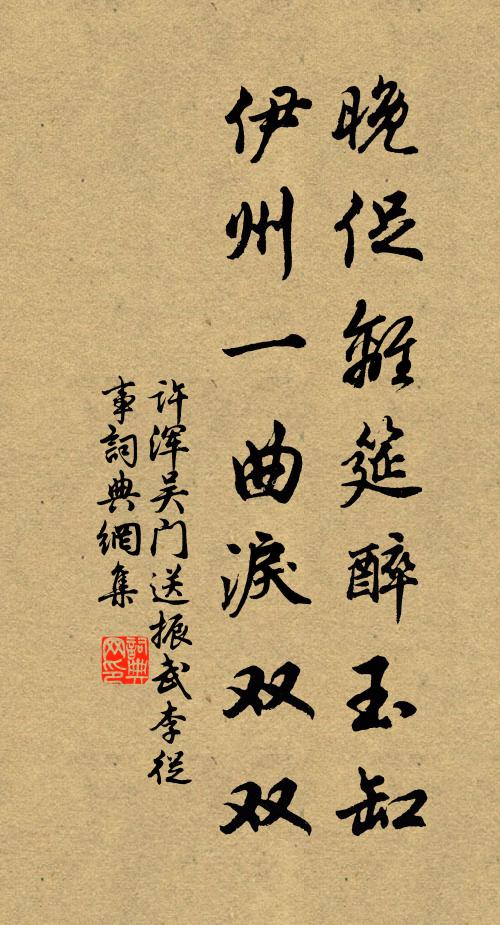 晚促離筵醉玉缸
伊州一曲淚双双
许浑吴门送振武李從
事詞典網集
詞典网印